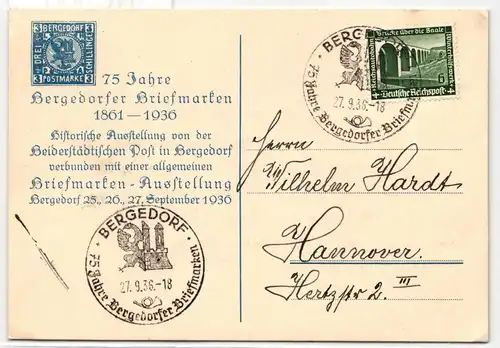 3 BERGEDORF 3
DREI SCHILLINGE
3 POSTMARKE 3
75 Jahre
Bergedorfer Briefmarken
1861—1936
Historische Ausstellung von der
Beiderstädtischen Post in Bergedorf
verbunden mit einer allgemeinen
Briefmarken-Ausstellung
Bergedorf 25., 26., 27. September 1936
BERGEDORF
27.9.36.-18
75 Jahre Bergedorfer Briefmarken
BERGED
27.9.36.-18
75 Jahre Bergedorfer Briefmar
Brücke über die Saale
6
Deutsche Reichspost
Herrn
Wilhelm Hardt
Hannover.
Hertzstr 2. III